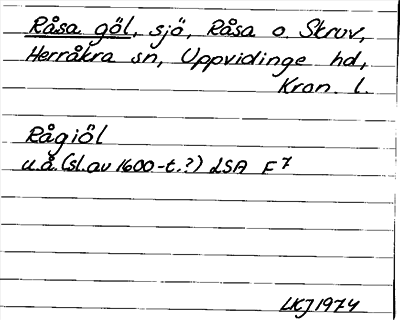 Råsa göl, sjö, Råsa o. Skruv,
Herråkra sn, Uppvidinge hd,
Kron. l.
Rågiöl
u.å. (sl. av 1600-t.?) LSA F 7
LKJ 1974